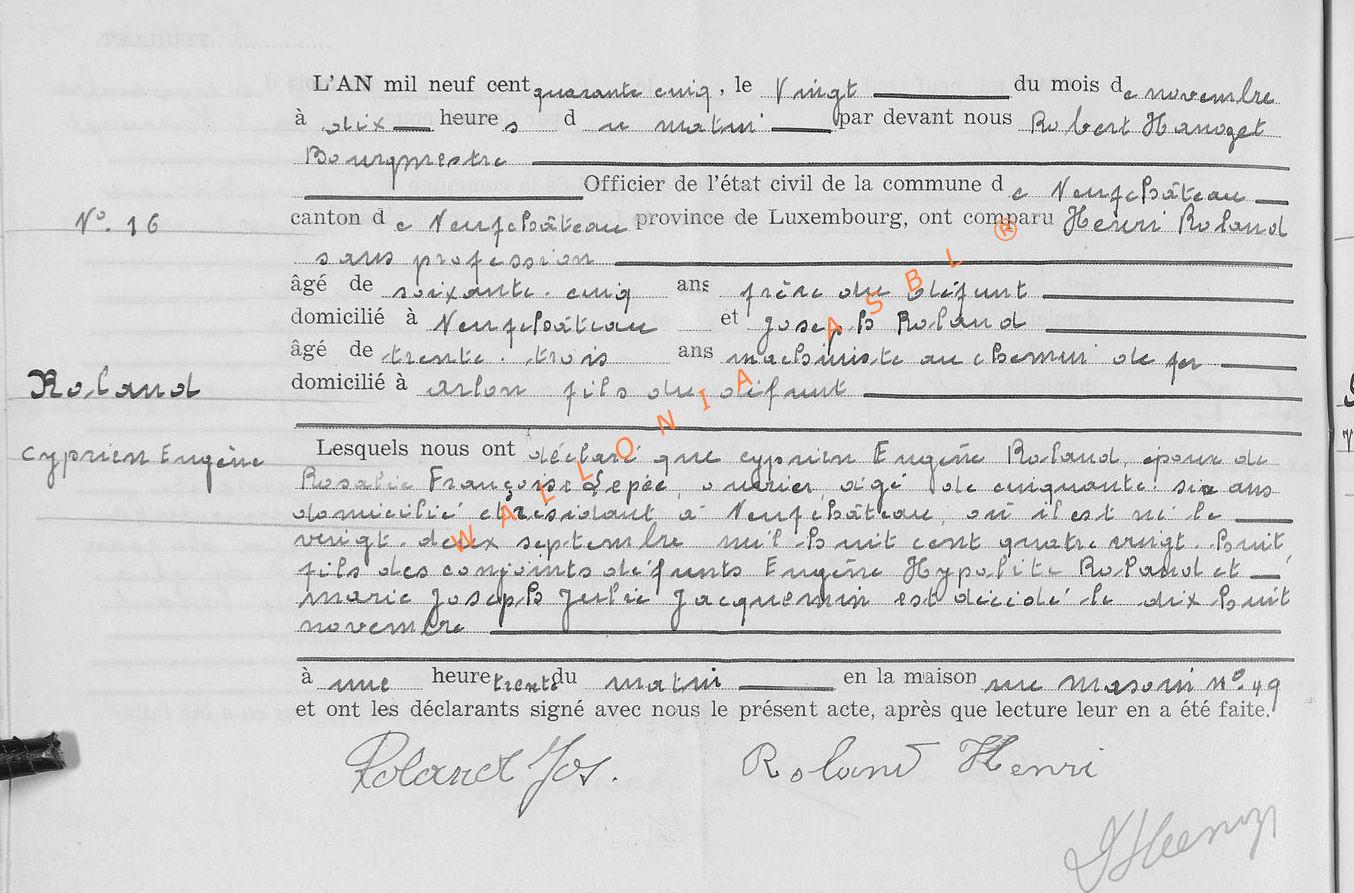 L'AN mil neuf cent quarante cinq, le Vingt du mois de novembre
à dix heures du matin par devant nous Robert
Bourgmestre
Officier de l'état civil de la commune de Neufchâteau
N°. 16
canton de Neufchâteau province de Luxembourg, ont comparu Henri Roland
sans profession
âgé de soixante. cinq ans frère du défunt
domicilié à Neufchâteau et Joseph Roland
âgé de trente. trois ans machiniste au chemin de fer
Roland
domicilié à Arlon fils du défunt
Cyprien Eugène
Lesquels nous ont déclaré que Cyprien Eugène Roland, époux de
Rosalie Françoise Lepée, ouvrier, âgé de cinquante. six ans
domicilié et résidant à Neufchâteau, où il est né le
vingt. deux septembre mil huit cent quatre vingt. huit,
fils des conjoints défunts Eugène Hypolite Roland et
Marie Joseph Julie Jacquemin est décédé le dix huit
novembre
à une heure trente du matin en la maison rue n°. 49
et ont les déclarants signé avec nous le présent acte, après que lecture leur en a été faite.
Roland Jos. Roland Henri
WALLONIA ASBL ®